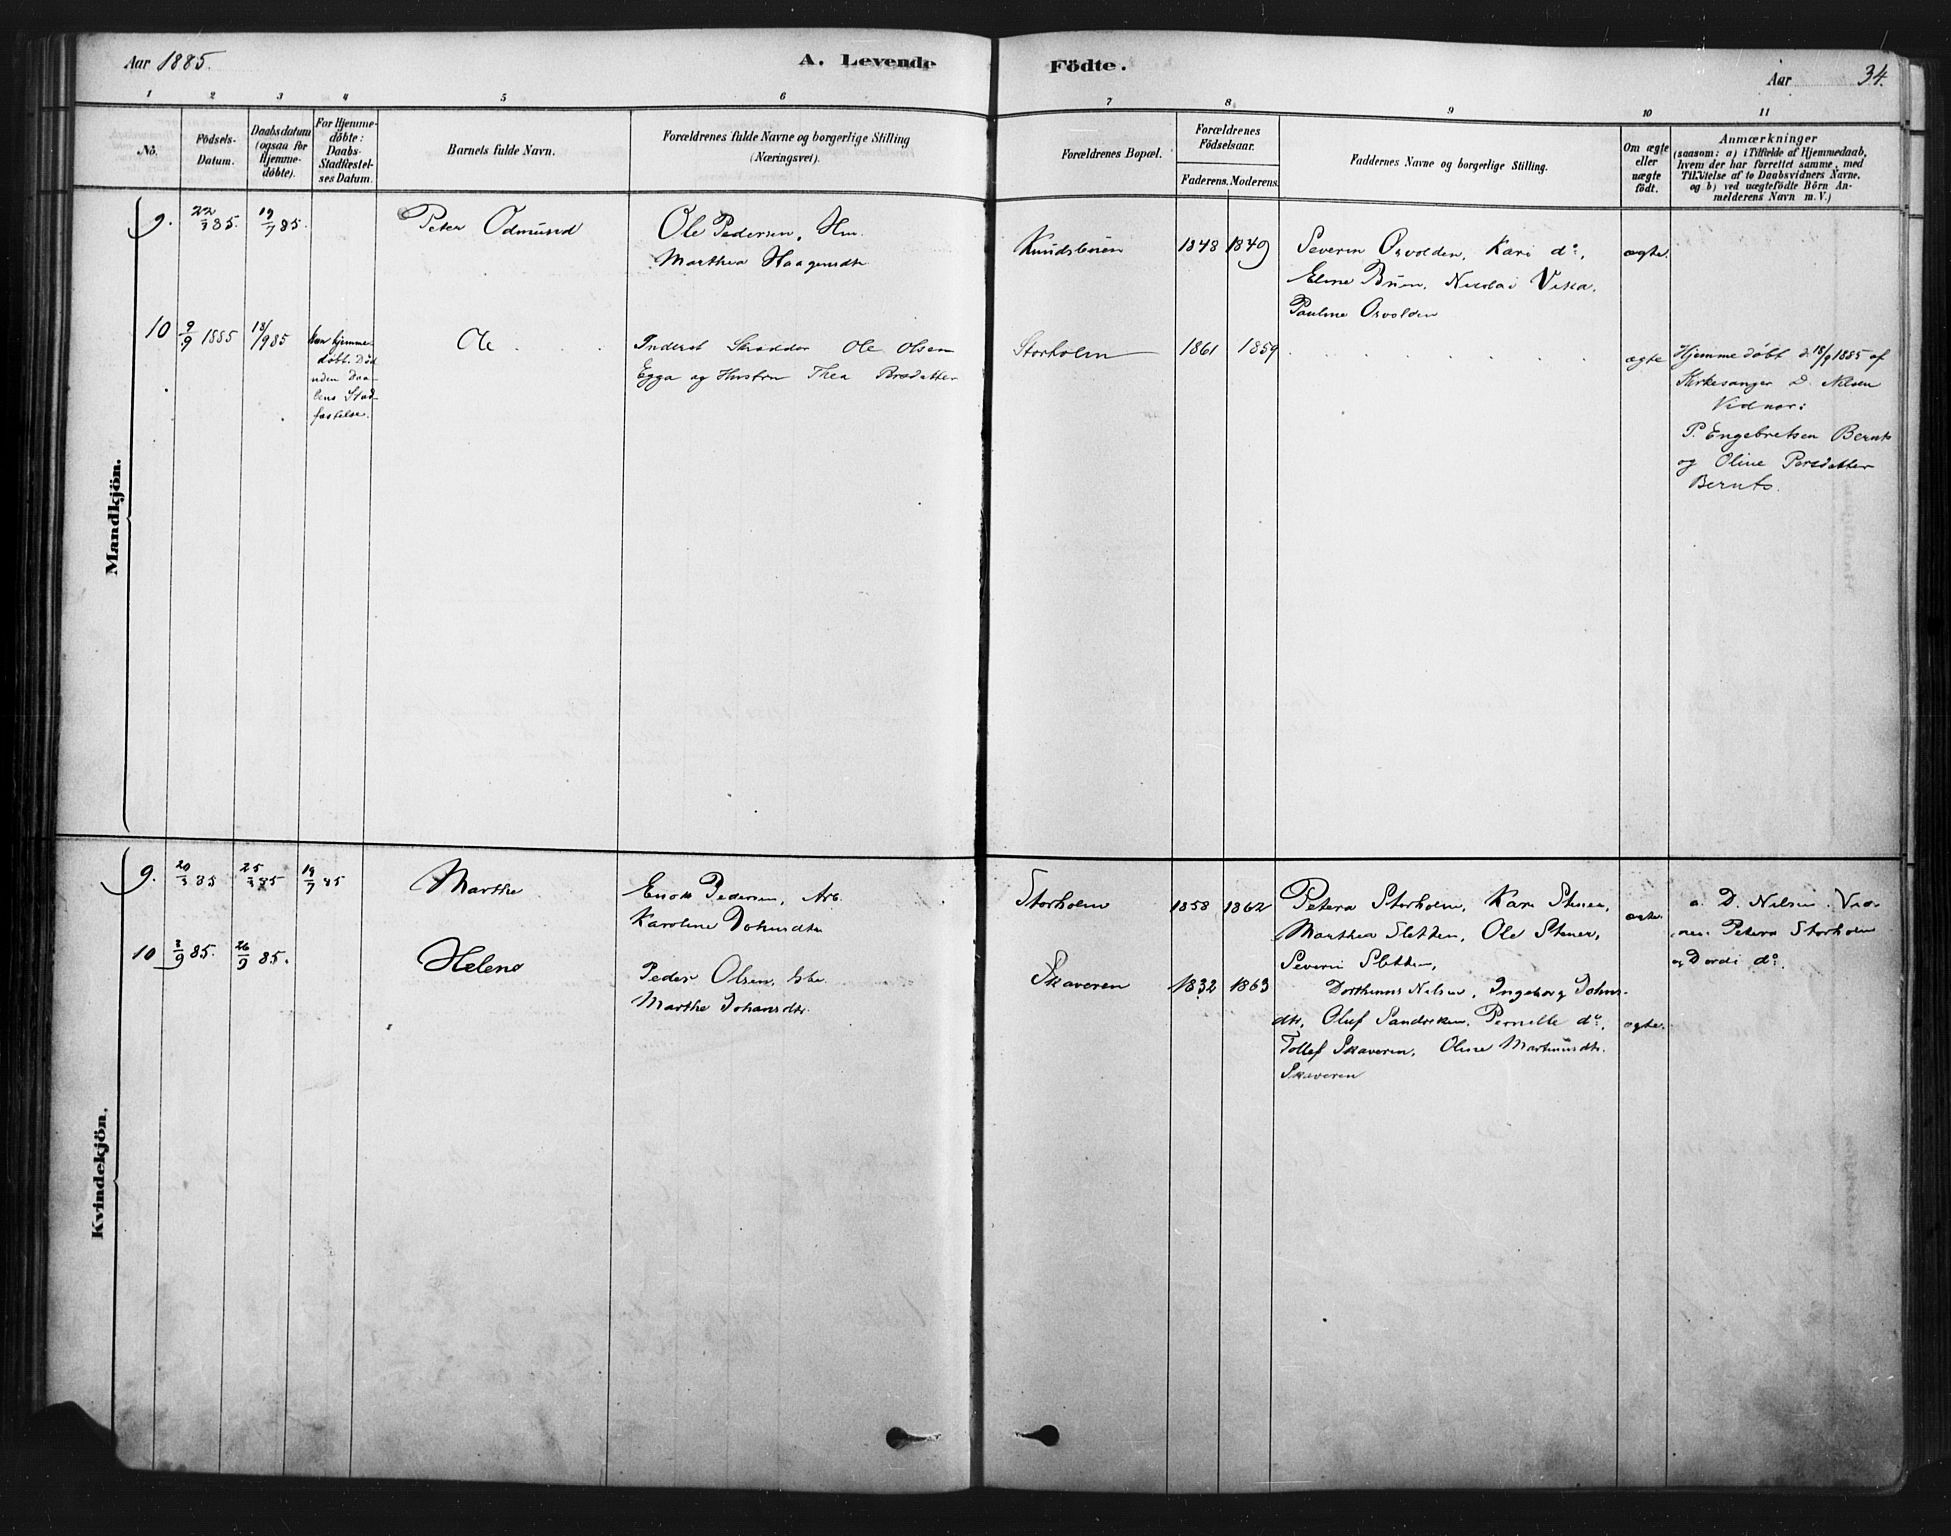 Aar 1885.
A. Levende Födte.
Aar 34.
1 2 3 4 5 6 7 8 9 10 11
No.
Födsels-Datum.
Daabsdatum (ogsaa for Hjemme-döbte).
For Hjemme-döbte: Daabs-Stadfæstel-ses Datum.
Barnets fulde Navn.
Forældrenes fulde Navne og borgerlige Stilling (Næringsvei).
Forældrenes Bopæl.
Forældrenes Födselsaar.
Faderens. Moderens.
Faddernes Navne og borgerlige Stilling.
Om ægte eller uægte födt.
Anmærkninger
(saasom: a) i Tilfælde af Hjemmedaab, hvem der har forrettet samme, med Tilföielse af to Daabsvidners Navne, og b) ved uægtefödte Börn An-melderens Navn m. V.)
Mandkjön.
9. 22/3 85. 19/7 85. Peter Odmund
Ole Pedersen, Hm.
Marthea Haagensdtr
1848 1849
Severin Osvolden, Kari do,
Eline Buen, Nicolai Veka,
Pauline Osvolden
ægte.
10 9/9 1885 18/9 85
kun hjemme-
døbt. Død
uden Daa-
bens Stad-
fæstelse.
Ole
Inderst Skrædder Ole Olsen
Egga og Hustru Thea
Storholm 1861 1859
ægte
Hjemmedøbt d. 18/9 1885 af
Kirkesanger D. Nilsen
Vidner:
P. Engebretsen Bernts
og Oline Persdatter
Bernts.
Kvindekjön.
9. 20/3 85 25/3 85 19/7 85 Marthe
Enok Pedersen, Arb.
Karoline Johnsdtr
Storholm 1858 1862
Petera Storholm, Kari Stener,
Marthea Sletten, Ole Stener,
Severin Sletten,
ægte.
a. D. Nilsen. Vid-
ner: Petera Storholm
og Dordi do.
10 2/9 85. 26/9 85. Helene
Peder Olsen,
Marthe Johansdtr.
Skaveren 1832 1863
Dorthinus Nilsen, Ingeborg Johns-
dtr, Oluf Sandviken, Pernille do,
Tollef Skaveren, Oline Martinusdtr.
Skaveren
ægte.